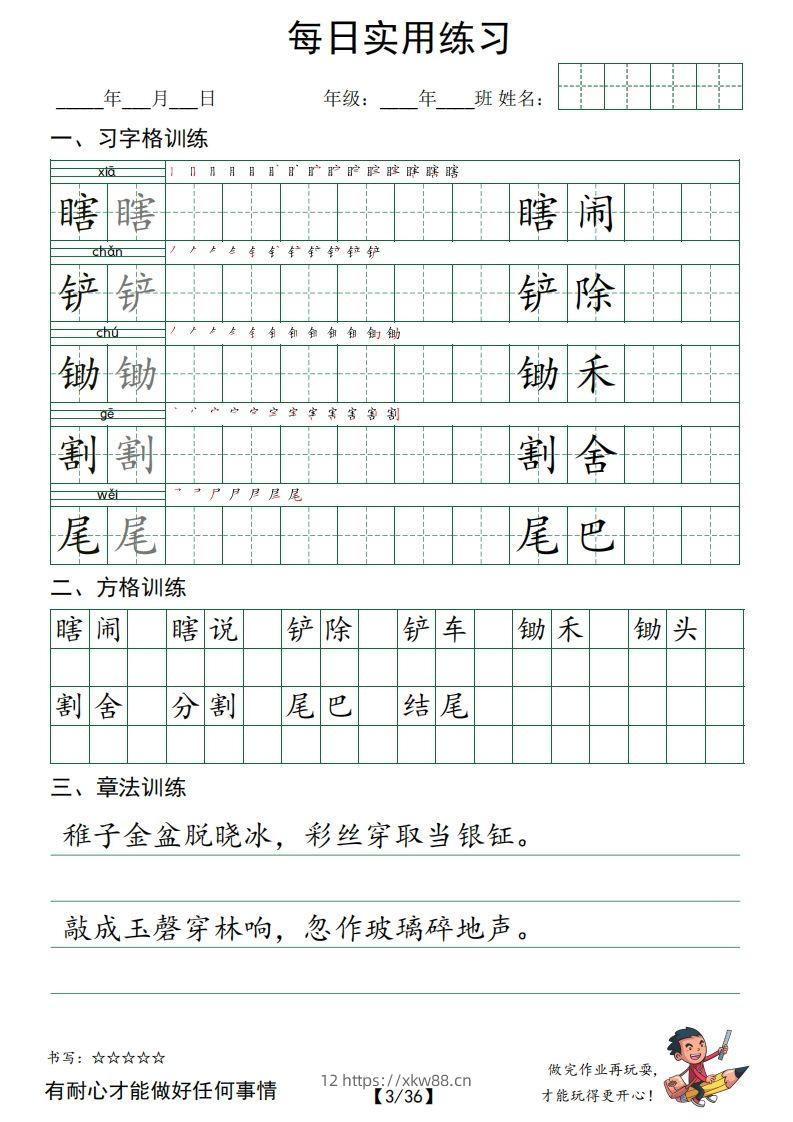 每日实用练习
_____年___月___日 年级：____年____班 姓名：
一、习字格训练
xiā
瞎 瞎 瞎 闹
chǎn
铲 铲 铲 除
chú
锄 锄 锄 禾
gē
割 割 割 舍
wěi
尾 尾 尾 巴
二、方格训练
瞎 闹 瞎 说 铲 除 铲 车 锄 禾 锄 头
割 舍 分 割 尾 巴 结 尾
三、章法训练
稚子金盆脱晓冰，彩丝穿取当银钲。
敲成玉磬穿林响，忽作玻璃碎地声。
书写：☆☆☆☆☆
有耐心才能做好任何事情
12 https://xkw88.cn
【3/36】
做完作业再玩耍，
才能玩得更开心！